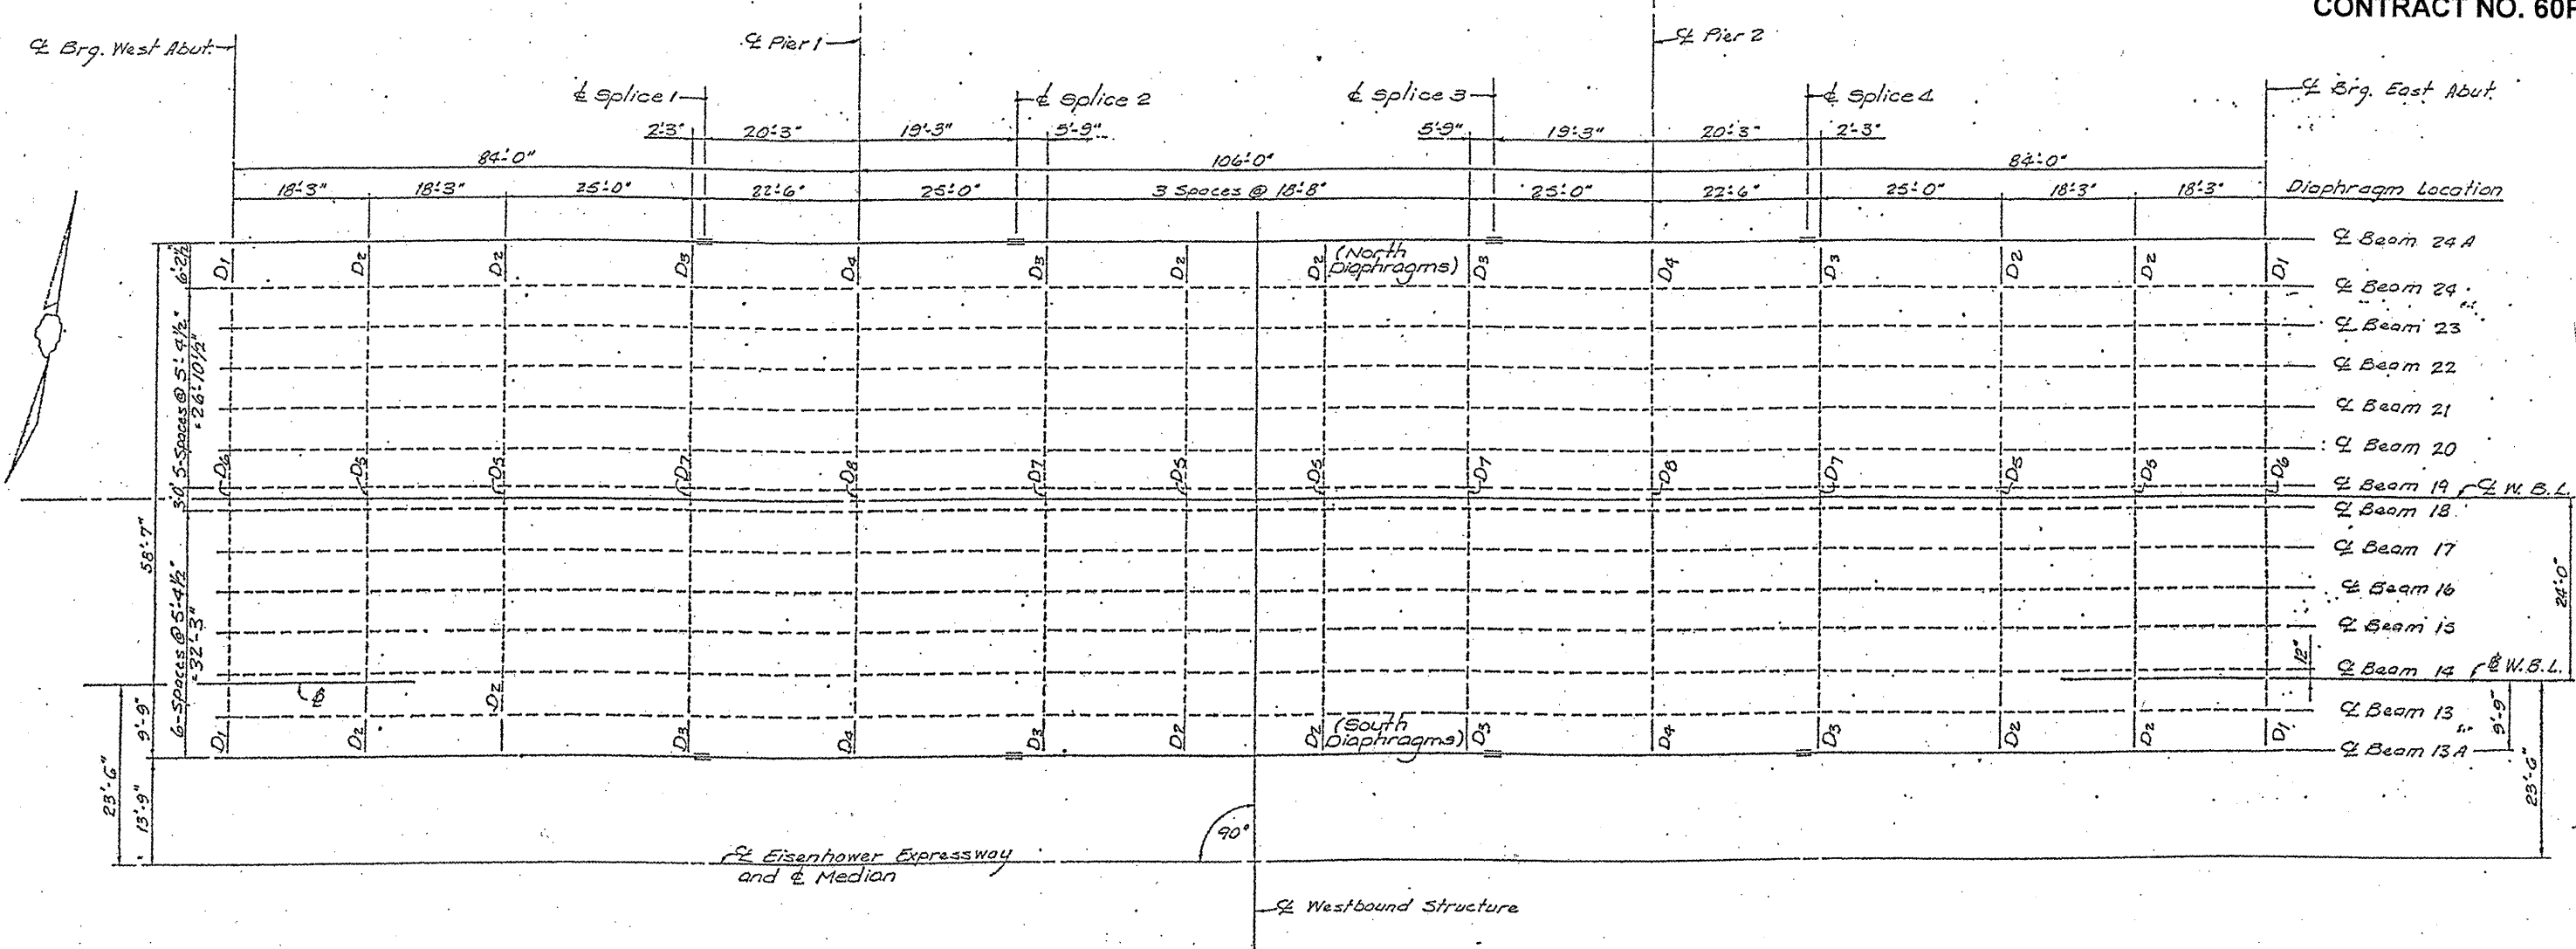 CONTRACT NO. 60
℄ Brg. West Abut.
℄ Pier 1
℄ Pier 2
℄ Splice 1
℄ Splice 2
℄ Splice 3
℄ Splice 4
℄ Brg. East Abut.
2'-3" 20'-3" 19'-3" 5'-9" 5'-9" 19'-3" 20'-3" 2'-3"
84'-0" 106'-0" 84'-0"
18'-3" 18'-3" 25'-0" 22'-6" 25'-0" 3 Spaces @ 18'-8" 25'-0" 22'-6" 25'-0" 18'-3" 18'-3" Diaphragm Location
℄ Beam 24 A
D1 D2 D2 D3 D4 D3 D2 D2 (North Diaphragms) D3 D4 D3 D2 D2 D1
℄ Beam 24
℄ Beam 23
℄ Beam 22
℄ Beam 21
℄ Beam 20
D6 D5 D5 D7 D8 D7 D5 D5 D7 D8 D7 D5 D5 D6
℄ Beam 19
℄ W.B.L.
℄ Beam 18
℄ Beam 17
℄ Beam 16
℄ Beam 15
℄ Beam 14
W.B.L.
℄ Beam 13
D2
D1 D2 D3 D4 D3 D2 D2 (South Diaphragms) D3 D4 D3 D2 D2 D1
℄ Beam 13 A
6'-2½"
5-Spaces @ 5'-4½"
= 26'-10½"
6-Spaces @ 5'-4½"
= 32'-3"
58'-7"
9'-9"
13'-9"
23'-6"
24'-0"
12"
9'-9"
23'-6"
90°
℄ Eisenhower Expressway
and ℄ Median
℄ Westbound Structure